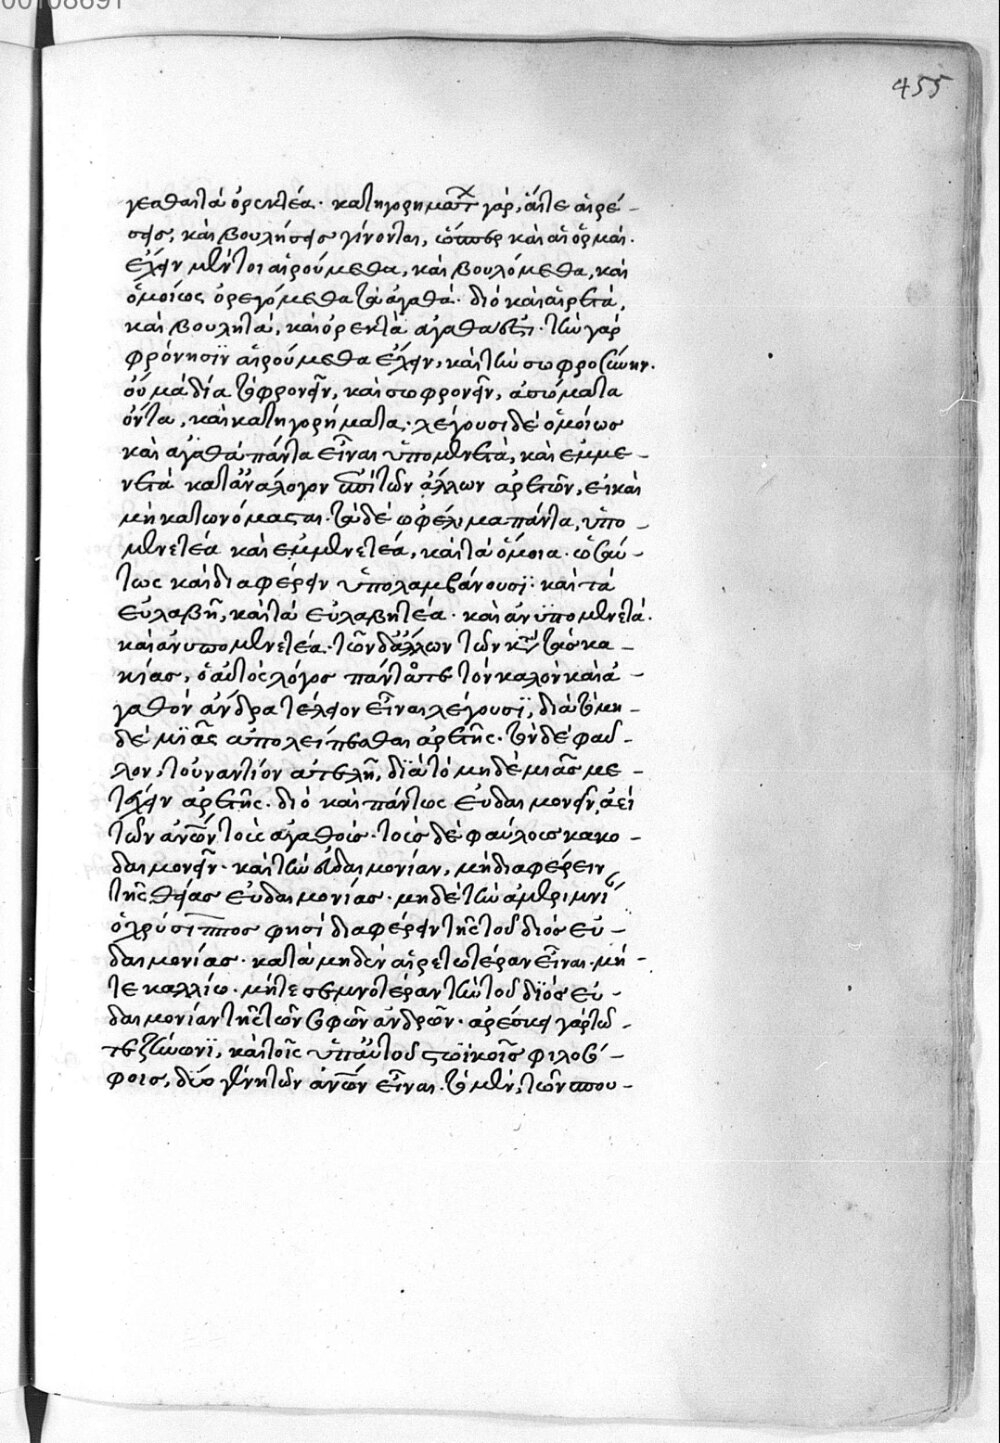 00108691
455
γεσθαι τὰ ὀρεκτέα· κατηγορημάτων γὰρ, αἵτε αἱρέ-
σεις, καὶ βουλήσεις γίνονται, ὥσπερ καὶ αἱ ὁρμαί.
ἔχειν μέντοι αἱρούμεθα, καὶ βουλόμεθα, καὶ
ὁμοίως ὀρεγόμεθα τὰ ἀγαθά· διὸ καὶ αἱρετὰ,
καὶ βουλητὰ, καὶ ὀρεκτὰ ἀγαθά ἐστι· τὴν γὰρ
φρόνησιν αἱρούμεθα ἔχειν, καὶ τὴν σωφροσύνην.
οὐ μὰ δία τὸ φρονεῖν, καὶ σωφρονεῖν, ἀσώματα
ὄντα, καὶ κατηγορήματα. λέγουσι δὲ ὁμοίως
καὶ ἀγαθὰ πάντα εἶναι ὑπομενετὰ, καὶ ἐμμε-
νετὰ κατανάλογον ἐπὶ τῶν ἄλλων ἀρετῶν, εἰ καὶ
μὴ κατωνόμασται. τὰ δὲ ὠφέλιμα πάντα, ὑπο-
μενετέα καὶ ἐμμενετέα, καὶ τὰ ὅμοια· ὡσαύ-
τως καὶ διαφέρειν ὑπολαμβάνουσϊ· καὶ τὰ
εὐλαβῆ, καὶ τὰ εὐλαβητέα· καὶ ἀνϋπομενετά.
καὶ ἀνυπομενετέα· τῶν δ' ἄλλων τῶν κατὰ τὰς κα-
κίας, ὁ αὐτὸς λόγος πάντα τε τὸν καλὸν καὶ ἀ-
γαθὸν ἄνδρα τέλειον εἶναι λέγουσϊ, διὰ τὸ μη-
δὲ μϊᾶς ἀπολείπεσθαι ἀρετῆς· τὸν δὲ φαῦ-
λον, τοὐναντίον ἀτελῆ, δϊὰ τὸ μηδὲ μιᾶς με-
τέχειν ἀρετῆς· διὸ καὶ πάντως εὐδαιμονεῖν, ἀεὶ
τῶν ἀνθρώπων τοὺς ἀγαθούς· τοὺς δὲ φαύλους κακο-
δαιμονεῖν· καὶ τὴν εὐδαιμονίαν, μὴ διαφέρειν
τῆς θείας εὐδαιμονίας· μηδὲ τὴν ἀμεριμνί
ὁ χρύσιππος φησὶ διαφέρειν τῆς τοῦ διὸς εὐ-
δαιμονίας· κατὰ μηδὲν αἱρετωτέραν εἶναι. μή-
τε καλλίω· μήτε σεμνοτέραν τὴν τοῦ δϊὸς εὐ-
δαιμονίαν τῆς τῶν σοφῶν ἀνδρῶν· ἀρέσκει γὰρ τῶ
τε ζήνωνϊ, καὶ τοῖς ὑπ' αὐτοῦ στωϊκοῖς φιλοσό-
φοις, δύο γένη τῶν ἀνθρώπων εἶναι. τὸ μὲν, τῶν σπου-